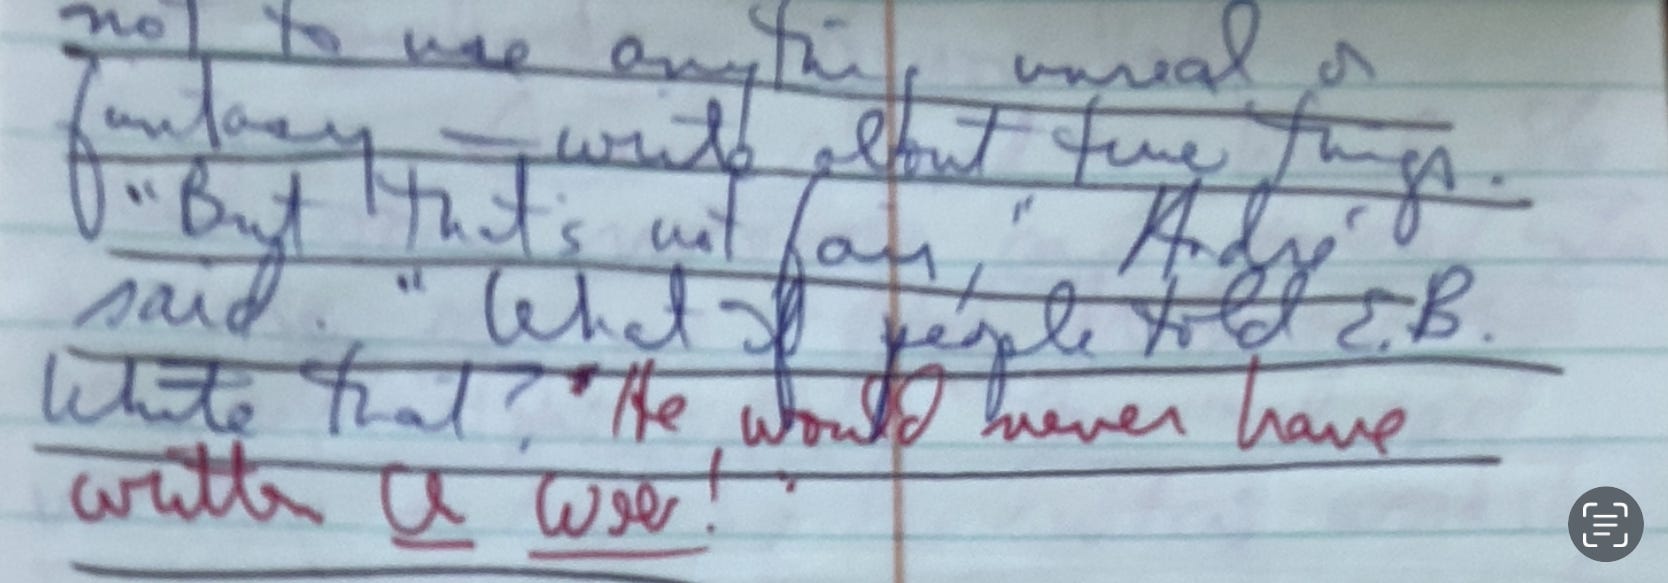 not to use anything unreal or
fantasy — write about true things.
"But that's not fair," André
said. "What if people told E.B.
White that? "He would never have
written a